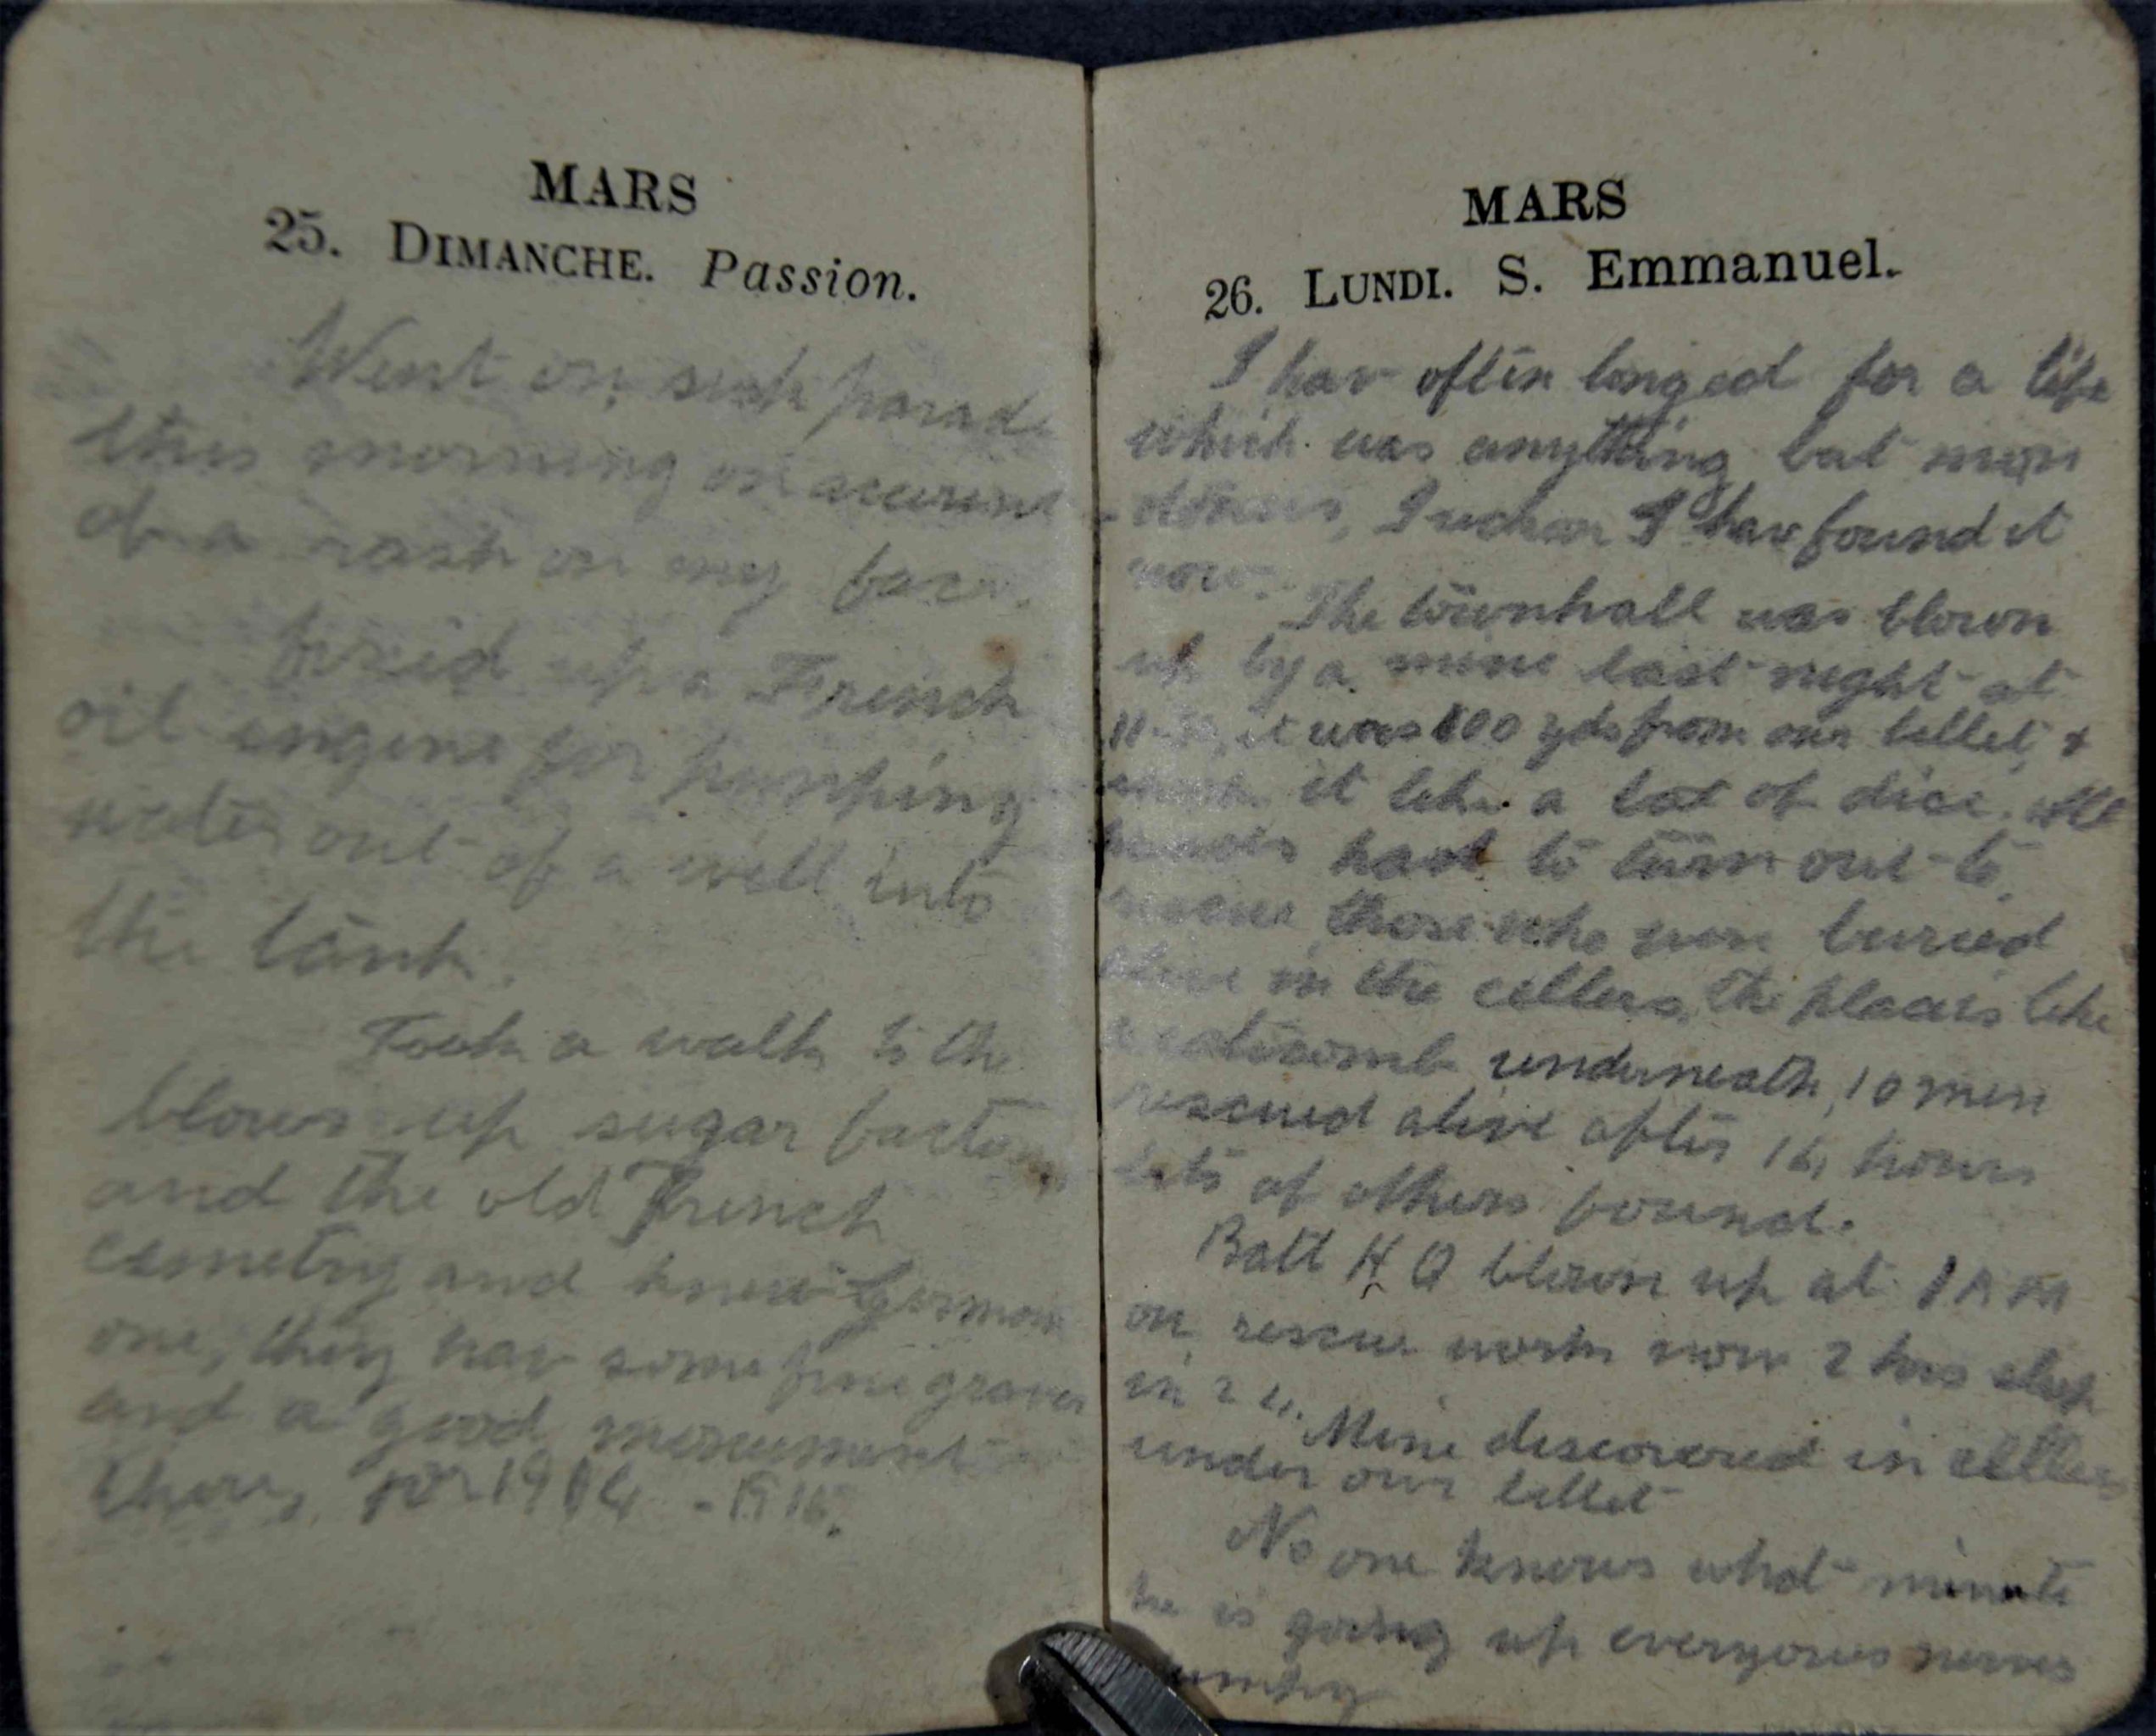 MARS
25. DIMANCHE. Passion.
Went on sick parade
this morning on account
of a rash on my face.
fixed up a French
oil engine for pumping
water out of a well into
the tank.
Took a walk to the
blown up sugar factory
and the old French
cemetry and new German
one, they hav some fine graves
and a good monument
there, for 1914 -
MARS
26. LUNDI. S. Emmanuel.
I hav often longed for a life
which was anything but mon
- I have found it
now.
The townhall was blown
up by a mine last night at
it was 800 yds from our billet, &
it like a lot of dice. All
hands had to turn out to
rescue those who were buried
alive in the cellers, the place is like
a catecomb underneath, 10 men
rescued alive after hours
lots of others found.
Batt H Q blown up at 1 AM
on rescue work now 2 hrs sleep
in 24. Mine discovered in celler
under our billet
No one knows what minute
he is going up everyones nerves
jumpy